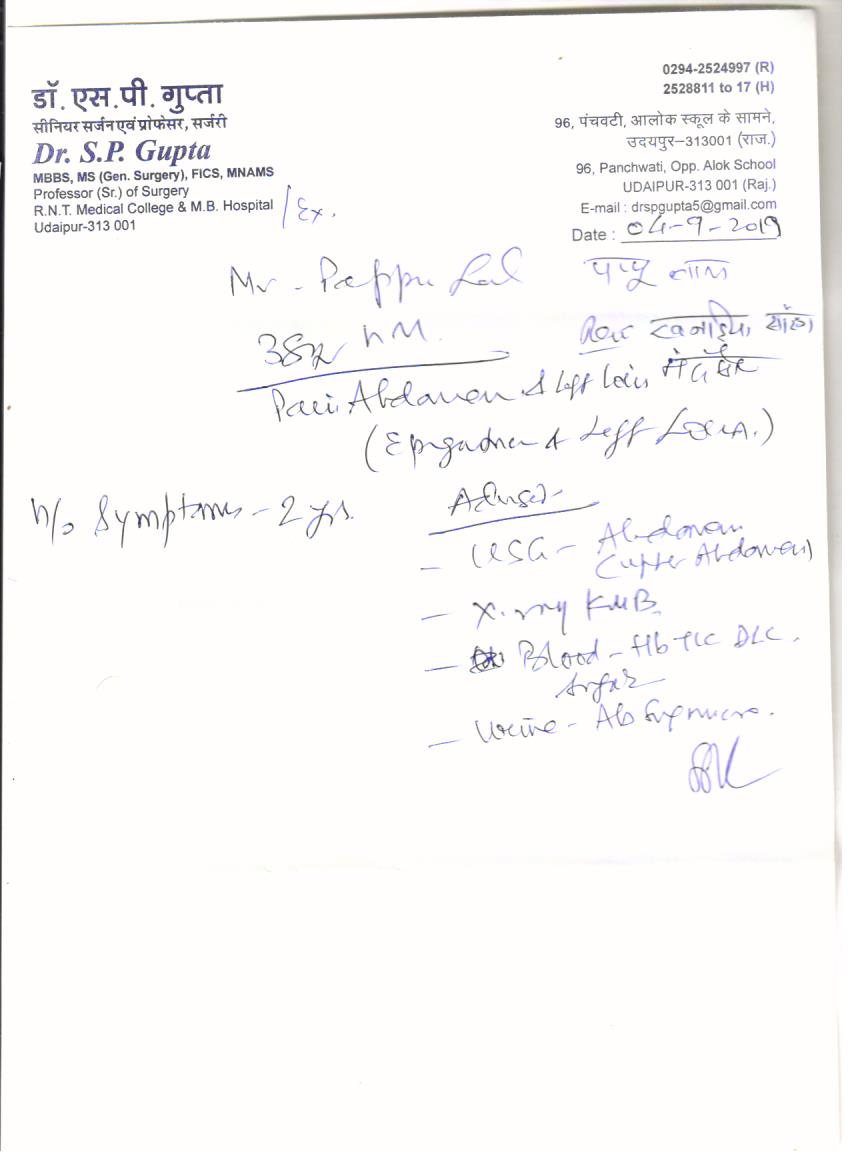 डॉ. एस.पी. गुप्ता
सीनियर सर्जन एवं प्रोफेसर, सर्जरी
Dr. S.P. Gupta
MBBS, MS (Gen. Surgery), FICS, MNAMS
Professor (Sr.) of Surgery
R.N.T. Medical College & M.B. Hospital / Ex.
Udaipur-313 001
0294-2524997 (R)
2528811 to 17 (H)
96, पंचवटी, आलोक स्कूल के सामने,
उदयपुर–313001 (राज.)
96, Panchwati, Opp. Alok School
UDAIPUR-313 001 (Raj.)
E-mail : drspgupta5@gmail.com
Date : 04-9-2019
Mr - Pappu Lal
पप्पु लाल
38
Pain Abdomen & Left Loin
( & Left Loin.)
h/o Symptoms - 2 yrs.
Advised -
- USG - Abdomen
(upper Abdomen)
- X-ray KUB
- Blood - Hb TLC DLC.
Sugar
- Urine - Alb Sug micro.